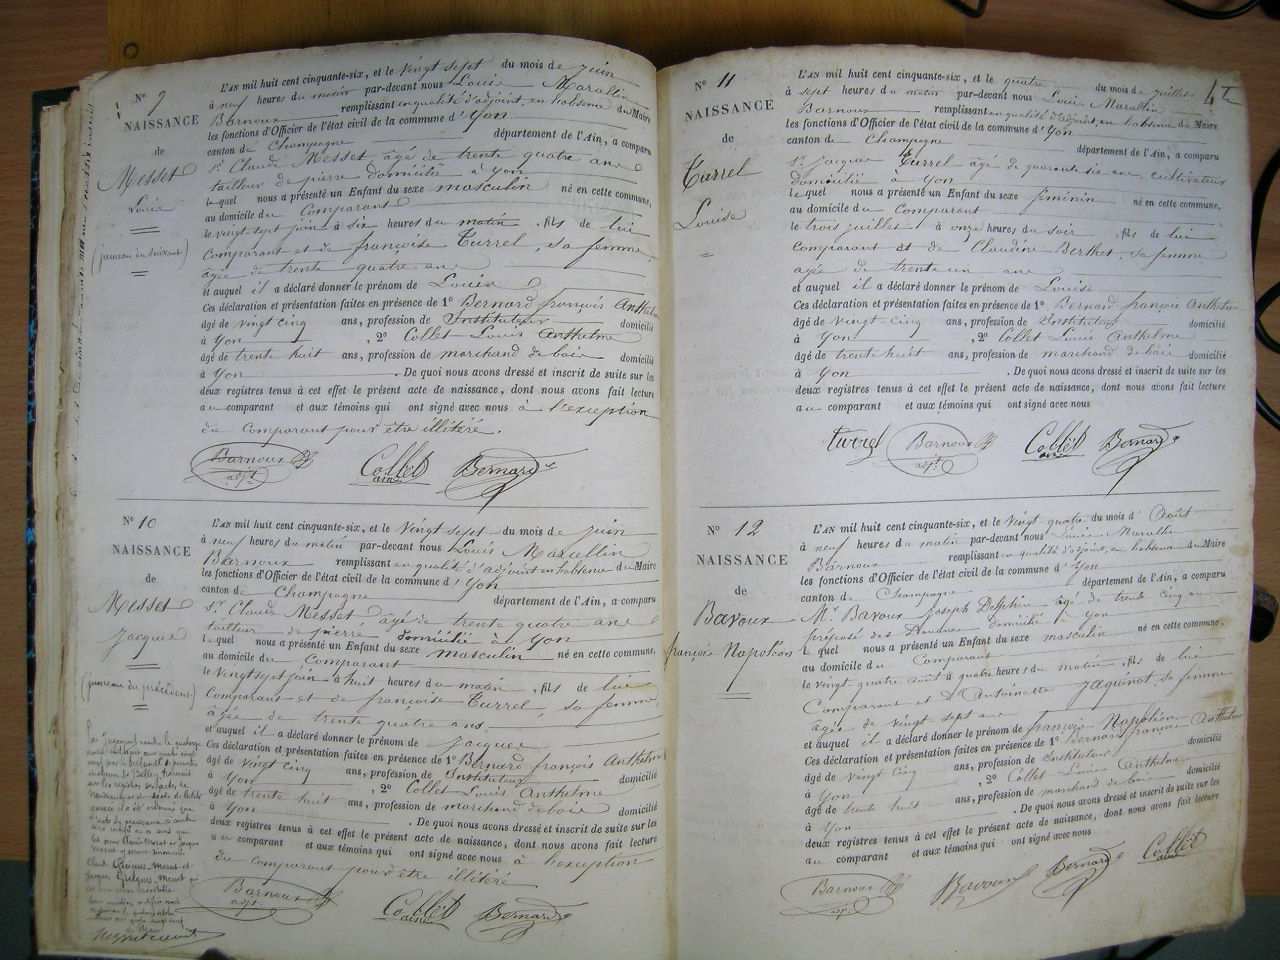 N° 9
NAISSANCE
de
Messet
Louis
(jumeau du suivant)
L'AN mil huit cent cinquante-six, et le vingt sept du mois de juin
à neuf heures du matin par-devant nous Louis Marcellin
Barnoux remplissant en qualité d'adjoint, en l'absence du Maire
les fonctions d'Officier de l'état civil de la commune d'Yon
canton de Champagne département de l'Ain, a comparu
Sr. Claude Messet âgé de trente quatre ans
tailleur de pierre domicilié à Yon
lequel nous a présenté un Enfant du sexe masculin né en cette commune,
au domicile du Comparant
le vingt sept juin à six heures du matin, fils de lui
Comparant et de françoise Turrel, sa femme,
âgée de trente quatre ans
et auquel il a déclaré donner le prénom de Louis
Ces déclaration et présentation faites en présence de 1° Bernard françois Anthelme
âgé de vingt cinq ans, profession de Instituteur domicilié
à Yon , 2° Collet Louis Anthelme
âgé de trente huit ans, profession de marchand de bois domicilié
à Yon . De quoi nous avons dressé et inscrit de suite sur les
deux registres tenus à cet effet le présent acte de naissance, dont nous avons fait lecture
au comparant et aux témoins qui ont signé avec nous à l'exception
du Comparant pour être illétéré.
Barnoux adjt. Collet Bernard
N° 10
NAISSANCE
de
Messet
Jacques
(jumeau du précédent)
L'AN mil huit cent cinquante-six, et le vingt sept du mois de juin
à neuf heures du matin par-devant nous Louis Marcellin
Barnoux remplissant en qualité d'adjoint en l'absence du Maire
les fonctions d'Officier de l'état civil de la commune d'Yon
canton de Champagne département de l'Ain, a comparu
Sr. Claude Messet âgé de trente quatre ans
tailleur de pierre, domicilié à Yon
lequel nous a présenté un Enfant du sexe masculin né en cette commune,
au domicile du Comparant
le vingt sept juin à huit heures du matin, fils de lui
Comparant et de françoise Turrel, sa femme,
âgée de trente quatre ans
et auquel il a déclaré donner le prénom de Jacques
Ces déclaration et présentation faites en présence de 1° Bernard françois Anthelme
âgé de vingt cinq ans, profession de Instituteur domicilié
à Yon , 2° Collet Louis Anthelme
âgé de trente huit ans, profession de marchand de bois domicilié
à Yon . De quoi nous avons dressé et inscrit de suite sur les
deux registres tenus à cet effet le présent acte de naissance, dont nous avons fait lecture
au comparant et aux témoins qui ont signé avec nous à l'exception
du comparant pour être illétéré
Barnoux adjt. Collet Bernard
N° 11
NAISSANCE
de
Turrel
Louise
L'AN mil huit cent cinquante-six, et le quatre du mois de juillet
à sept heures du matin par-devant nous Louis Marcellin
Barnoux remplissant en qualité d'adjoint, en l'absence du Maire
les fonctions d'Officier de l'état civil de la commune d'Yon
canton de Champagne département de l'Ain, a comparu
Sr. Jacques Turrel âgé de quarante six ans, cultivateur
domicilié à Yon
lequel nous a présenté un Enfant du sexe féminin né en cette commune,
au domicile du Comparant
le trois juillet à onze heures du soir, fils de lui
Comparant et de Claudine Berthet, sa femme
âgée de trente un ans
et auquel il a déclaré donner le prénom de Louise
Ces déclaration et présentation faites en présence de 1° Bernard françois Anthelme
âgé de vingt cinq ans, profession de Instituteur domicilié
à Yon , 2° Collet Louis Anthelme
âgé de trente huit ans, profession de marchand de bois domicilié
à Yon . De quoi nous avons dressé et inscrit de suite sur les
deux registres tenus à cet effet le présent acte de naissance, dont nous avons fait lecture
au comparant et aux témoins qui ont signé avec nous
turrel Barnoux adjt. Collet Bernard
N° 12
NAISSANCE
de
Bavoux
françois Napoléon
L'AN mil huit cent cinquante-six, et le vingt quatre du mois d'Août
à neuf heures du matin par-devant nous Louis Marcellin
Barnoux remplissant en qualité d'adjoint, en l'absence du Maire
les fonctions d'Officier de l'état civil de la commune d'Yon
canton de Champagne département de l'Ain, a comparu
Mr. Bavoux Joseph Delphin âgé de trente cinq ans
préposé des Douanes domicilié à Yon
lequel nous a présenté un Enfant du sexe masculin né en cette commune,
au domicile du Comparant
le vingt quatre août à quatre heures du matin, fils de lui
Comparant et d'Antoinette Jaquinot, sa femme
âgée de vingt sept ans
et auquel il a déclaré donner le prénom de françois Napoléon
Ces déclaration et présentation faites en présence de 1° Bernard françois Anthelme
âgé de vingt cinq ans, profession de Instituteur domicilié
à Yon , 2° Collet Louis Anthelme
âgé de trente huit ans, profession de marchand de bois domicilié
à Yon . De quoi nous avons dressé et inscrit de suite sur les
deux registres tenus à cet effet le présent acte de naissance, dont nous avons fait lecture
au comparant et aux témoins qui ont signé avec nous
Barnoux adjt. Bavoux Bernard Collet